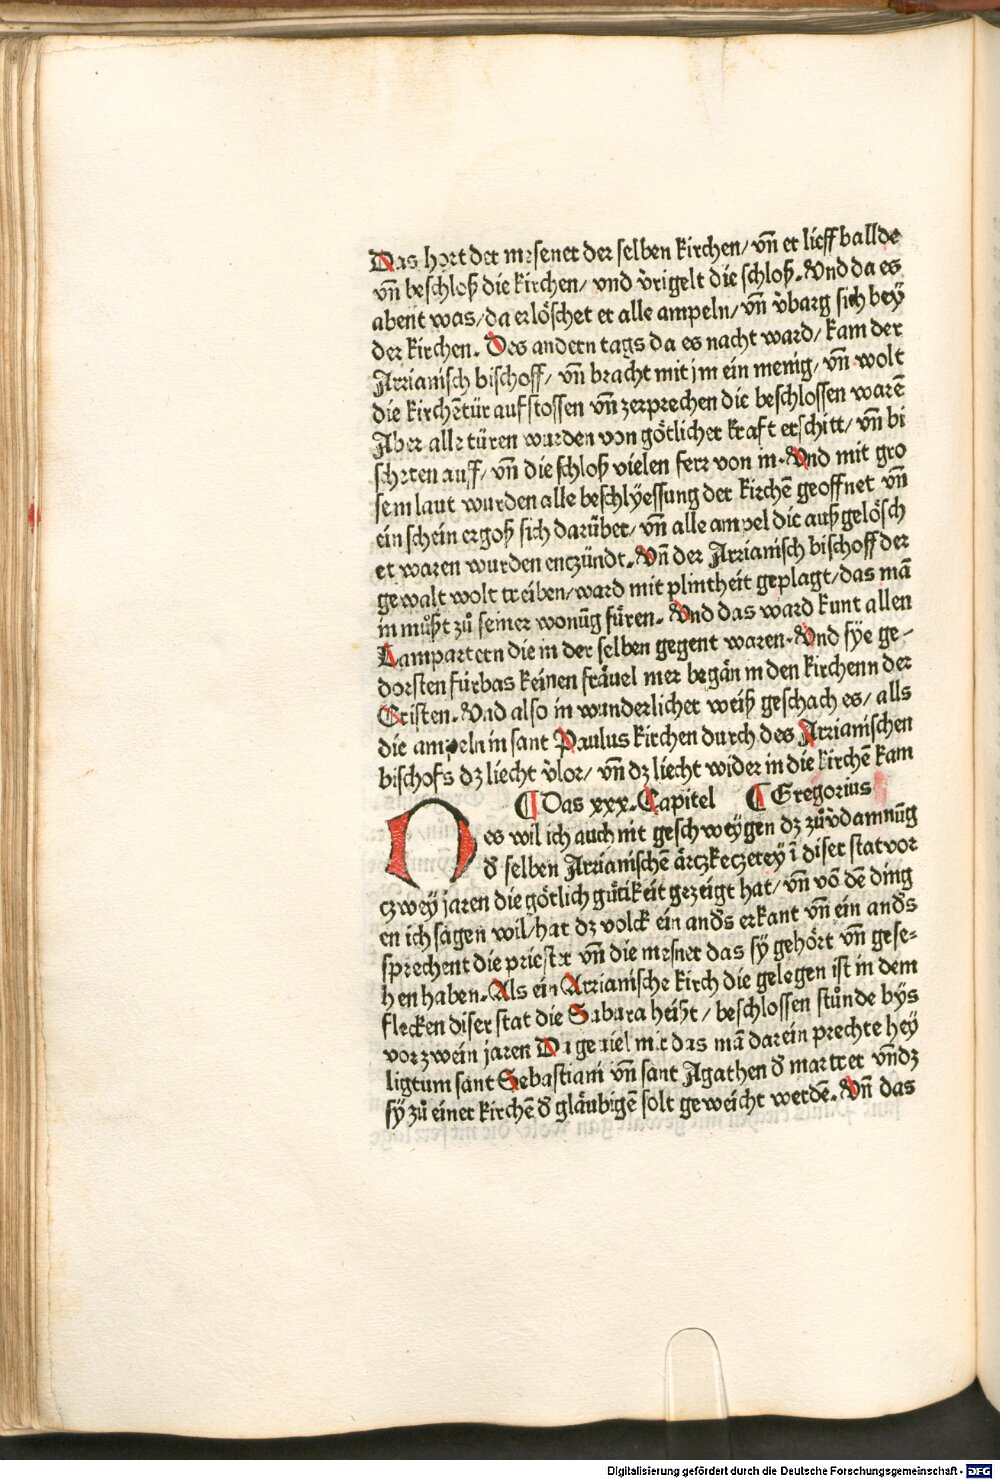 Das hort der mesener der selben kirchen/ vn̄ er lieff ballde
vn̄ beschloß die kirchen/ vnd v̓rigelt die schloß. Vnd da es
abent was/ da erlöschet er alle ampeln/ vn̄ v̓barg sich bey
der kirchen. Des andern tags da es nacht ward/ kam der
Arrianisch bischoff/ vn̄ bracht mit jm ein menig/ vn̄ wolt
die kirchētür aufstossen vn̄ zerprechen die beschlossen warē
Aber alle türen wurden von götlicher kraft erschitt/ vn̄ bi
scheten auff/ vn̄ die schloß vielen ferr von in. Vnd mit gro
sem laut wurden alle beschlyessung der kirchē geoffnet vn̄
ein schein ergoß sich darüber/ vn̄ alle ampel die außgelösch
et waren wurden enczündt. Vn̄ der Arrianisch bischoff der
gewalt wolt treiben/ ward mit plintheit geplagt/ das mā
in můst zů seiner wonūg füren. Vnd das ward kunt allen
Lampartern die in der selben gegent waren. Vnd sye ge-
dorsten fürbas keinen fräuel mer begān in den kirchenn der
Cristen. Vnd also in wunderlicher weiß geschach es/ alls
die ampeln in sant Paulus kirchen durch des Arrianischen
bischofs dz liecht v̓lor/ vn̄ dz liecht wider in die kirchē kam
¶ Das xxx. Capitel ¶ Gregorius
Des wil ich auch nit geschweygen dz zův̓damnūg
d̓ selben Arrianischē ärczkeczerey ī diser stat vor
czwey jaren die götlich gütikeit gezeigt hat/ vn̄ vō dē ding
en ich sagen wil/ hat dz volck ein and̓s erkant vn̄ ein and̓s
sprechent die priester vn̄ die mesner das sy gehört vn̄ gese-
hen haben. Als ein Arrianische kirch die gelegen ist in dem
flecken diser stat die Subura heißt/ beschlossen stůnde bys
vor zwein jaren Da geuiel mir das mā darein prechte hey
ligtum sant Sebastiani vn̄ sant Agathen d̓ martrer vn̄ dz
sy zů einer kirchē d̓ gläubigē solt geweicht werdē. Vn̄ das
Digitalisierung gefördert durch die Deutsche Forschungsgemeinschaft - DFG